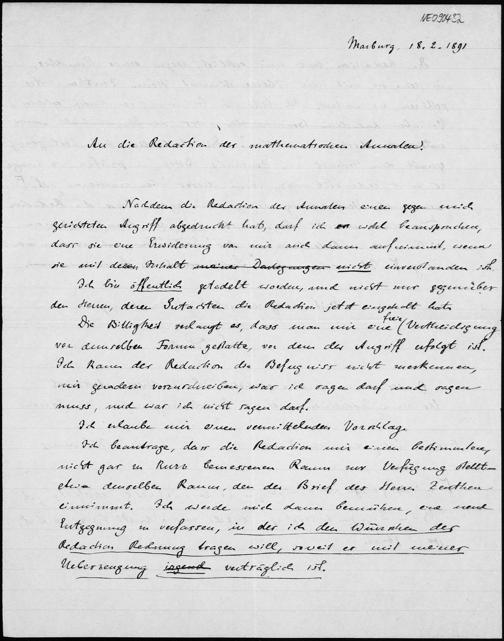 Marburg. 18.2.1891
An die Redaction der mathematischen Annalen!
Nachdem die Redaction der Annalen einen gegen mich
gerichteten Angriff abgedruckt hat, darf ich wohl beanspruchen,
dass sie eine Erwiderung von mir auch dann aufnimmt, wenn
sie mit deren Inhalt meiner Darlegungen nicht einverstanden ist.
Ich bin öffentlich getadelt worden, und nicht nur gegenüber
den Herren, deren Gutachten die Redaction jetzt eingeholt hat.
Die Billigkeit verlangt es, dass man mir eine freie Vertheidigung
vor demselben Forum gestatte, vor dem der Angriff erfolgt ist.
Ich kann der Redaction die Befugniss nicht zuerkennen,
mir geradezu vorzuschreiben, was ich sagen darf und sagen
muss, und was ich nicht sagen darf.
Ich erlaube mir einen vermittelnden Vorschlag.
Ich beantrage, dass die Redaction mir einen bestimmten,
nicht gar zu kurz bemessenen Raum zur Verfügung stellt
etwa denselben Raum, den der Brief des Herrn Zeuthen
einnimmt. Ich werde mich dann bemühen, eine neue
Entgegnung zu verfassen, in der ich den Wünschen der
Redaction Rechnung tragen will, soweit es mit meiner
Ueberzeugung irgend verträglich ist.